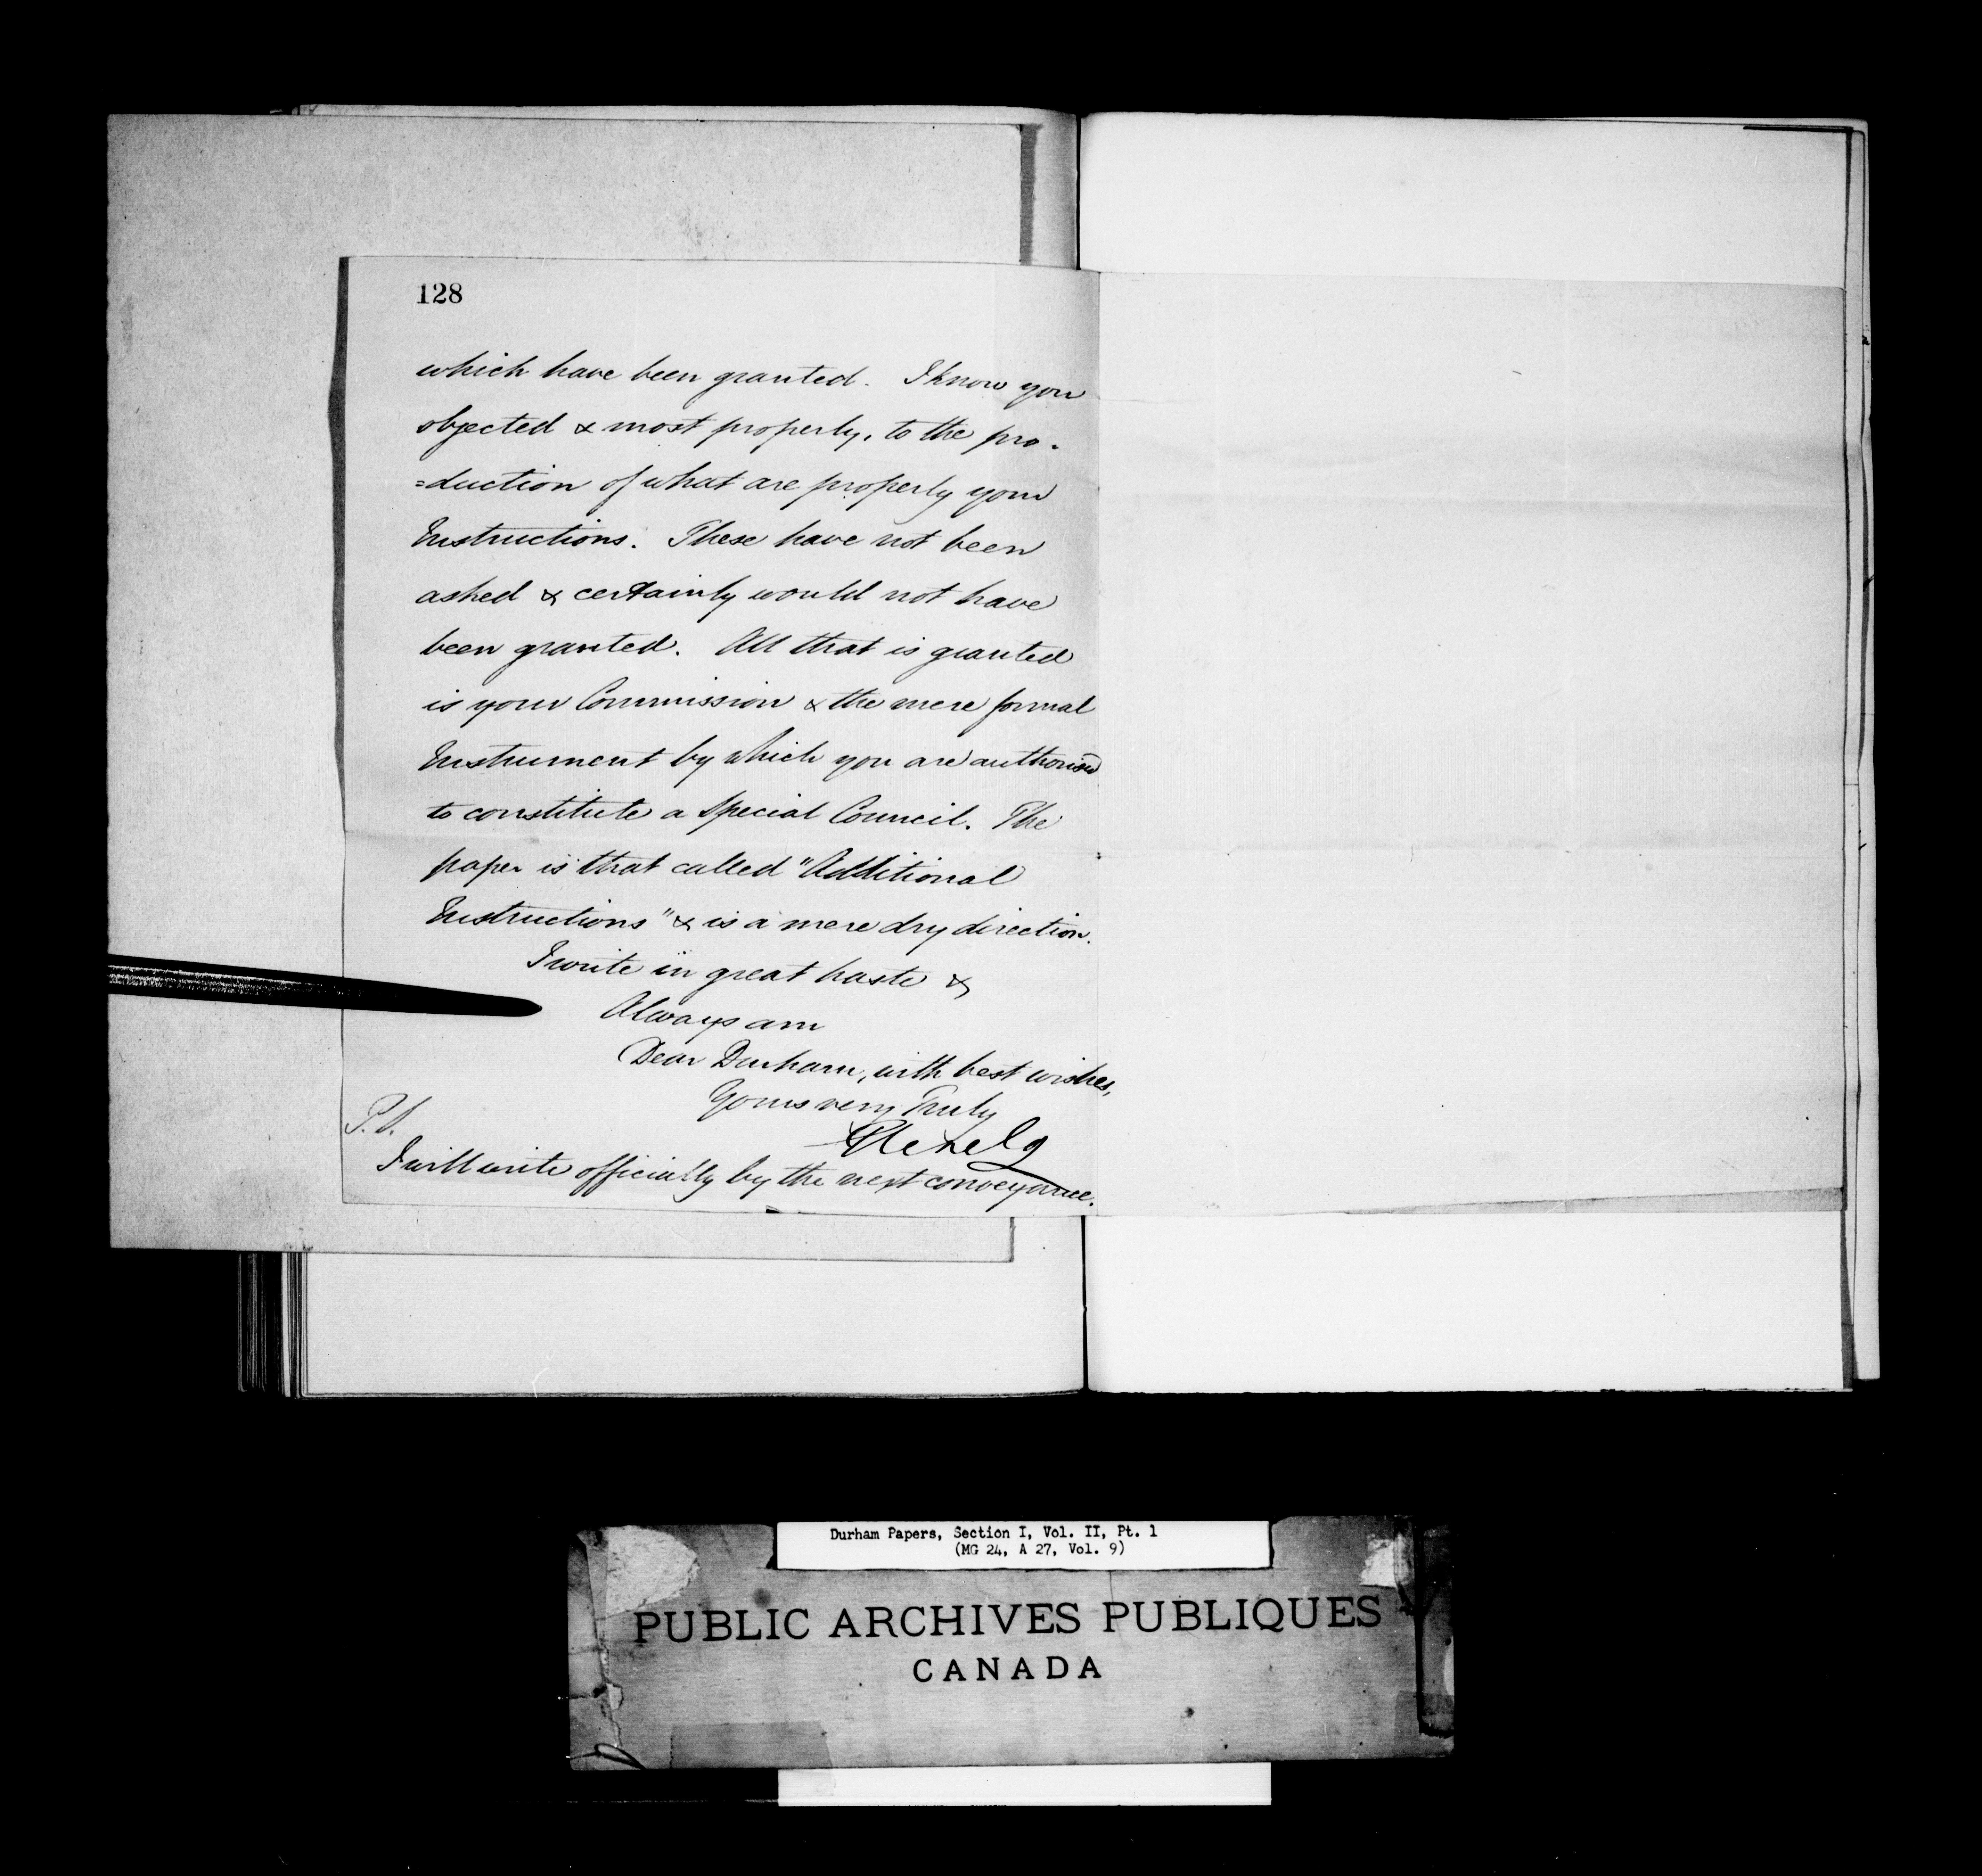 128
which have been granted. I know you
objected & most properly, to the pro-
=duction of what are properly your
Instructions. These have not been
asked & certainly would not have
been granted. All that is granted
is your Commission & the mere formal
Instrument by which you are authorised
to constitute a Special Council. The
paper is that called "Additional
Instructions" & is a mere dry direction.
I write in great haste &
Always am
Dear Durham, with best wishes,
Yours very Truly
Glenelg
P.S.
I will write officially by the next conveyance.
Durham Papers, Section I, Vol. II, Pt. 1
(MG 24, A 27, Vol. 9)
PUBLIC ARCHIVES PUBLIQUES
CANADA